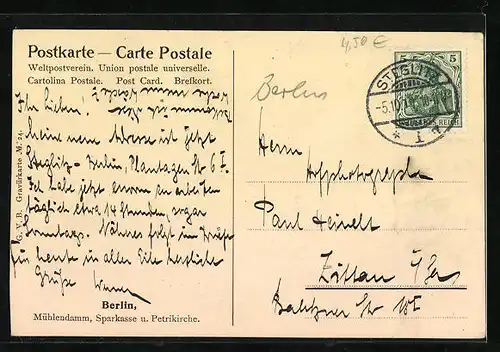 4,50 €
Postkarte — Carte Postale
Weltpostverein. Union postale universelle.
Cartolina Postale. Post Card. Brefkort.
Ihr Lieben!
meine neue Adresse ist jetzt
Steglitz - Berlin, Plantagen Str 6 I.
Ich habe jetzt enorm zu arbeiten
täglich etwa 14 Stunden, sogar
Sonntags. Näheres folgt im Briefe
für heute in aller Eile herzliche
Grüße
G. V. B. Gravürkarte № 24.
Berlin,
Mühlendamm, Sparkasse u. Petrikirche.
Berlin
STEGLITZ
-5.10.
* 1
5 5
DEUTSCHES REICH
Herrn
Hofphotographen
Paul
Zittau i/Sa
Str